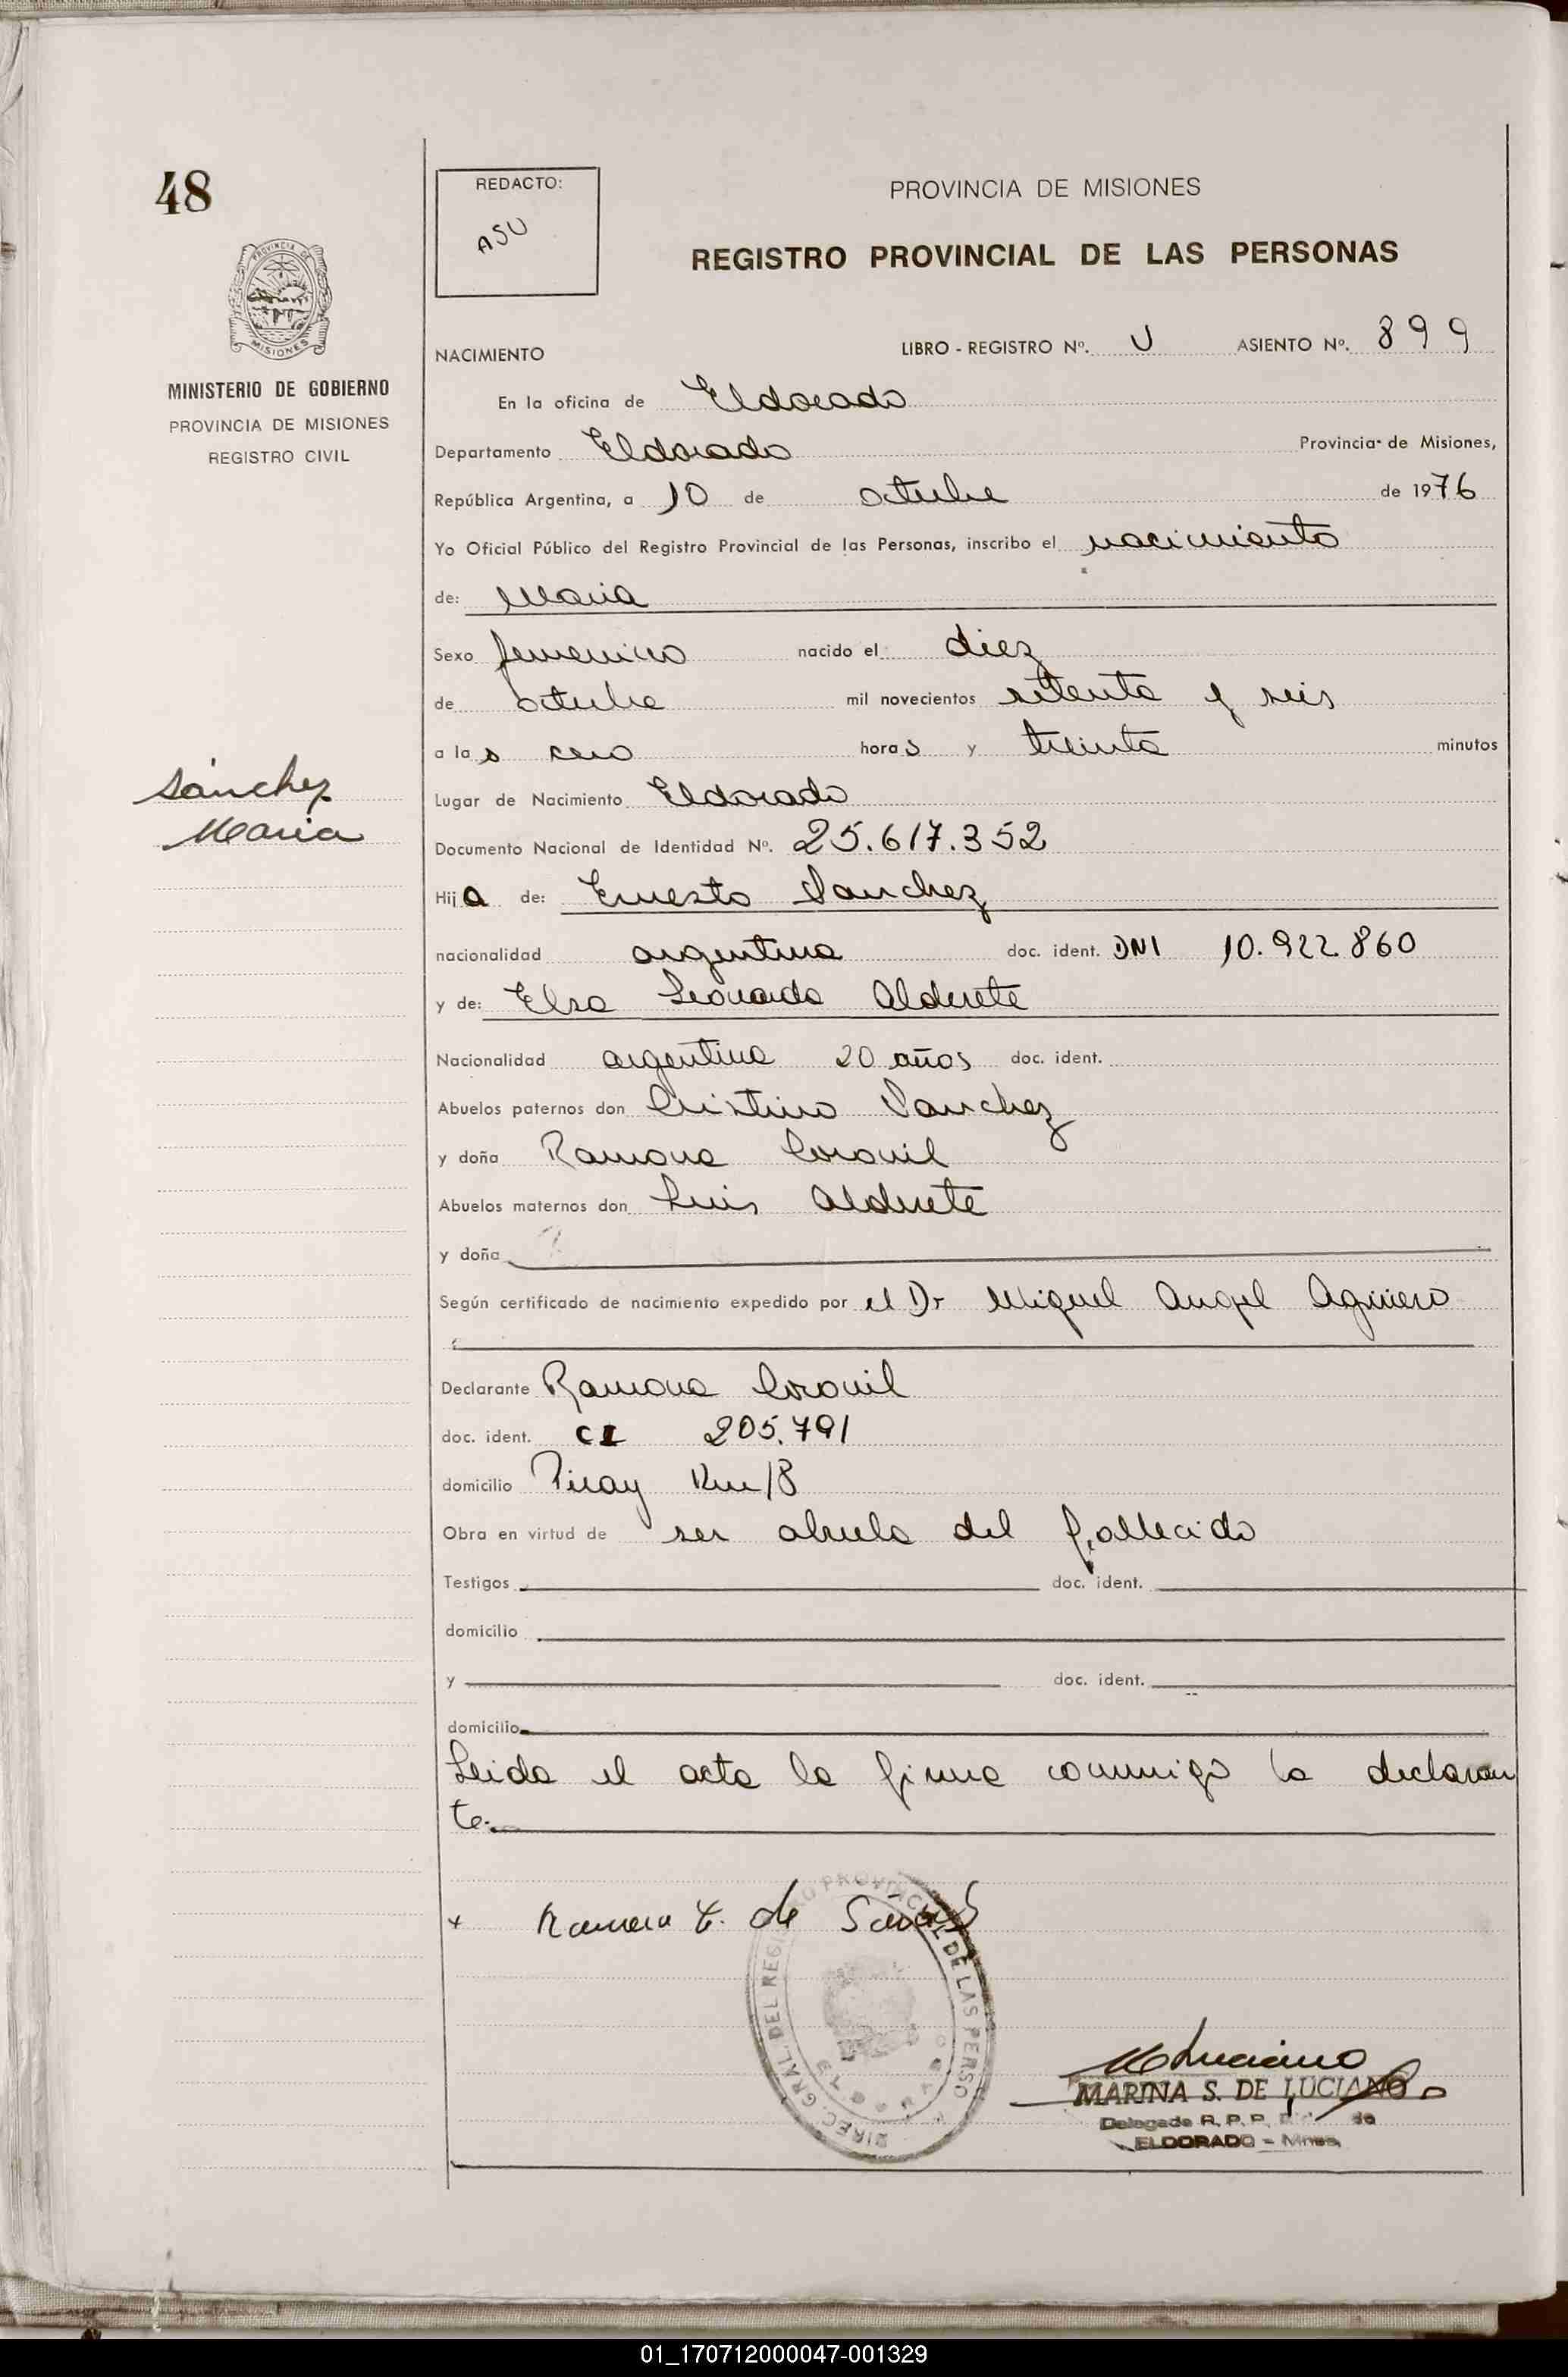 48
PROVINCIA DE
MISIONES
MINISTERIO DE GOBIERNO
PROVINCIA DE MISIONES
REGISTRO CIVIL
Sánchez
Maria
REDACTO:
ASU
PROVINCIA DE MISIONES
REGISTRO PROVINCIAL DE LAS PERSONAS
NACIMIENTO LIBRO - REGISTRO Nº. U ASIENTO Nº. 899
En la oficina de Eldorado
Departamento Eldorado Provincia de Misiones,
República Argentina, a 10 de octubre de 1976
Yo Oficial Público del Registro Provincial de las Personas, inscribo el nacimiento
de: Maria
Sexo femenino nacido el diez
de octubre mil novecientos setenta y seis
a las cero horas y treinta minutos
Lugar de Nacimiento Eldorado
Documento Nacional de Identidad Nº. 25.617.352
Hija de: Ernesto Sanchez
nacionalidad argentina doc. ident. DNI 10.922.860
y de: Elsa Leonarda Alderete
Nacionalidad argentina 20 años doc. ident.
Abuelos paternos don Cristino Sanchez
y doña Ramona Coronil
Abuelos maternos don Luis Alderete
y doña
Según certificado de nacimiento expedido por el Dr Miguel Angel Aguiero
Declarante Ramona Coronil
doc. ident. CI 205.791
domicilio Piray Km 18
Obra en virtud de ser abuela del fallecido
Testigos doc. ident.
domicilio
y doc. ident.
domicilio
Leida el acta la firma conmigo la declaran
te.
x Ramona C. de
DIREC. GRAL. DEL REGISTRO PROVINCIAL DE LAS PERSO
ELDORADO
MLuciano
MARINA S. DE LUCIANO
Delegada R. P. P.
ELDORADO - Mnes.
01_170712000047-001329